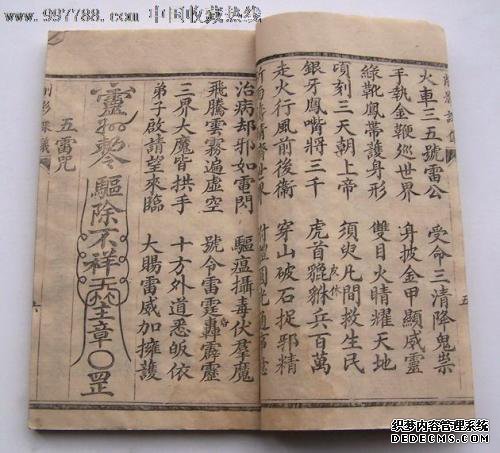 www.997788.com 中国收藏热线
火車三五號雷公 受命三清降鬼祟
手執金鞭巡世界 身披金甲顯威靈
綠靴鳳帶護身形 雙目火睛耀天地
頃刻三天朝上帝 須臾凡間救生民
銀牙鳳嘴將三千 虎首貔貅兵百萬
走火行風前後衛 穿山破石捉邪精
五
治病却邪如雷 驅瘟攝毒伏羣魔
飛騰雲霧遍虛空 號令雷霆轟霹靂
三界大魔皆拱手 十方外道悉皈依
弟子啟請望來臨 大賜雷威加擁護
驅除不祥 章〇罡
五雷咒
六
织梦内容管理系统
DEDECMS.COM